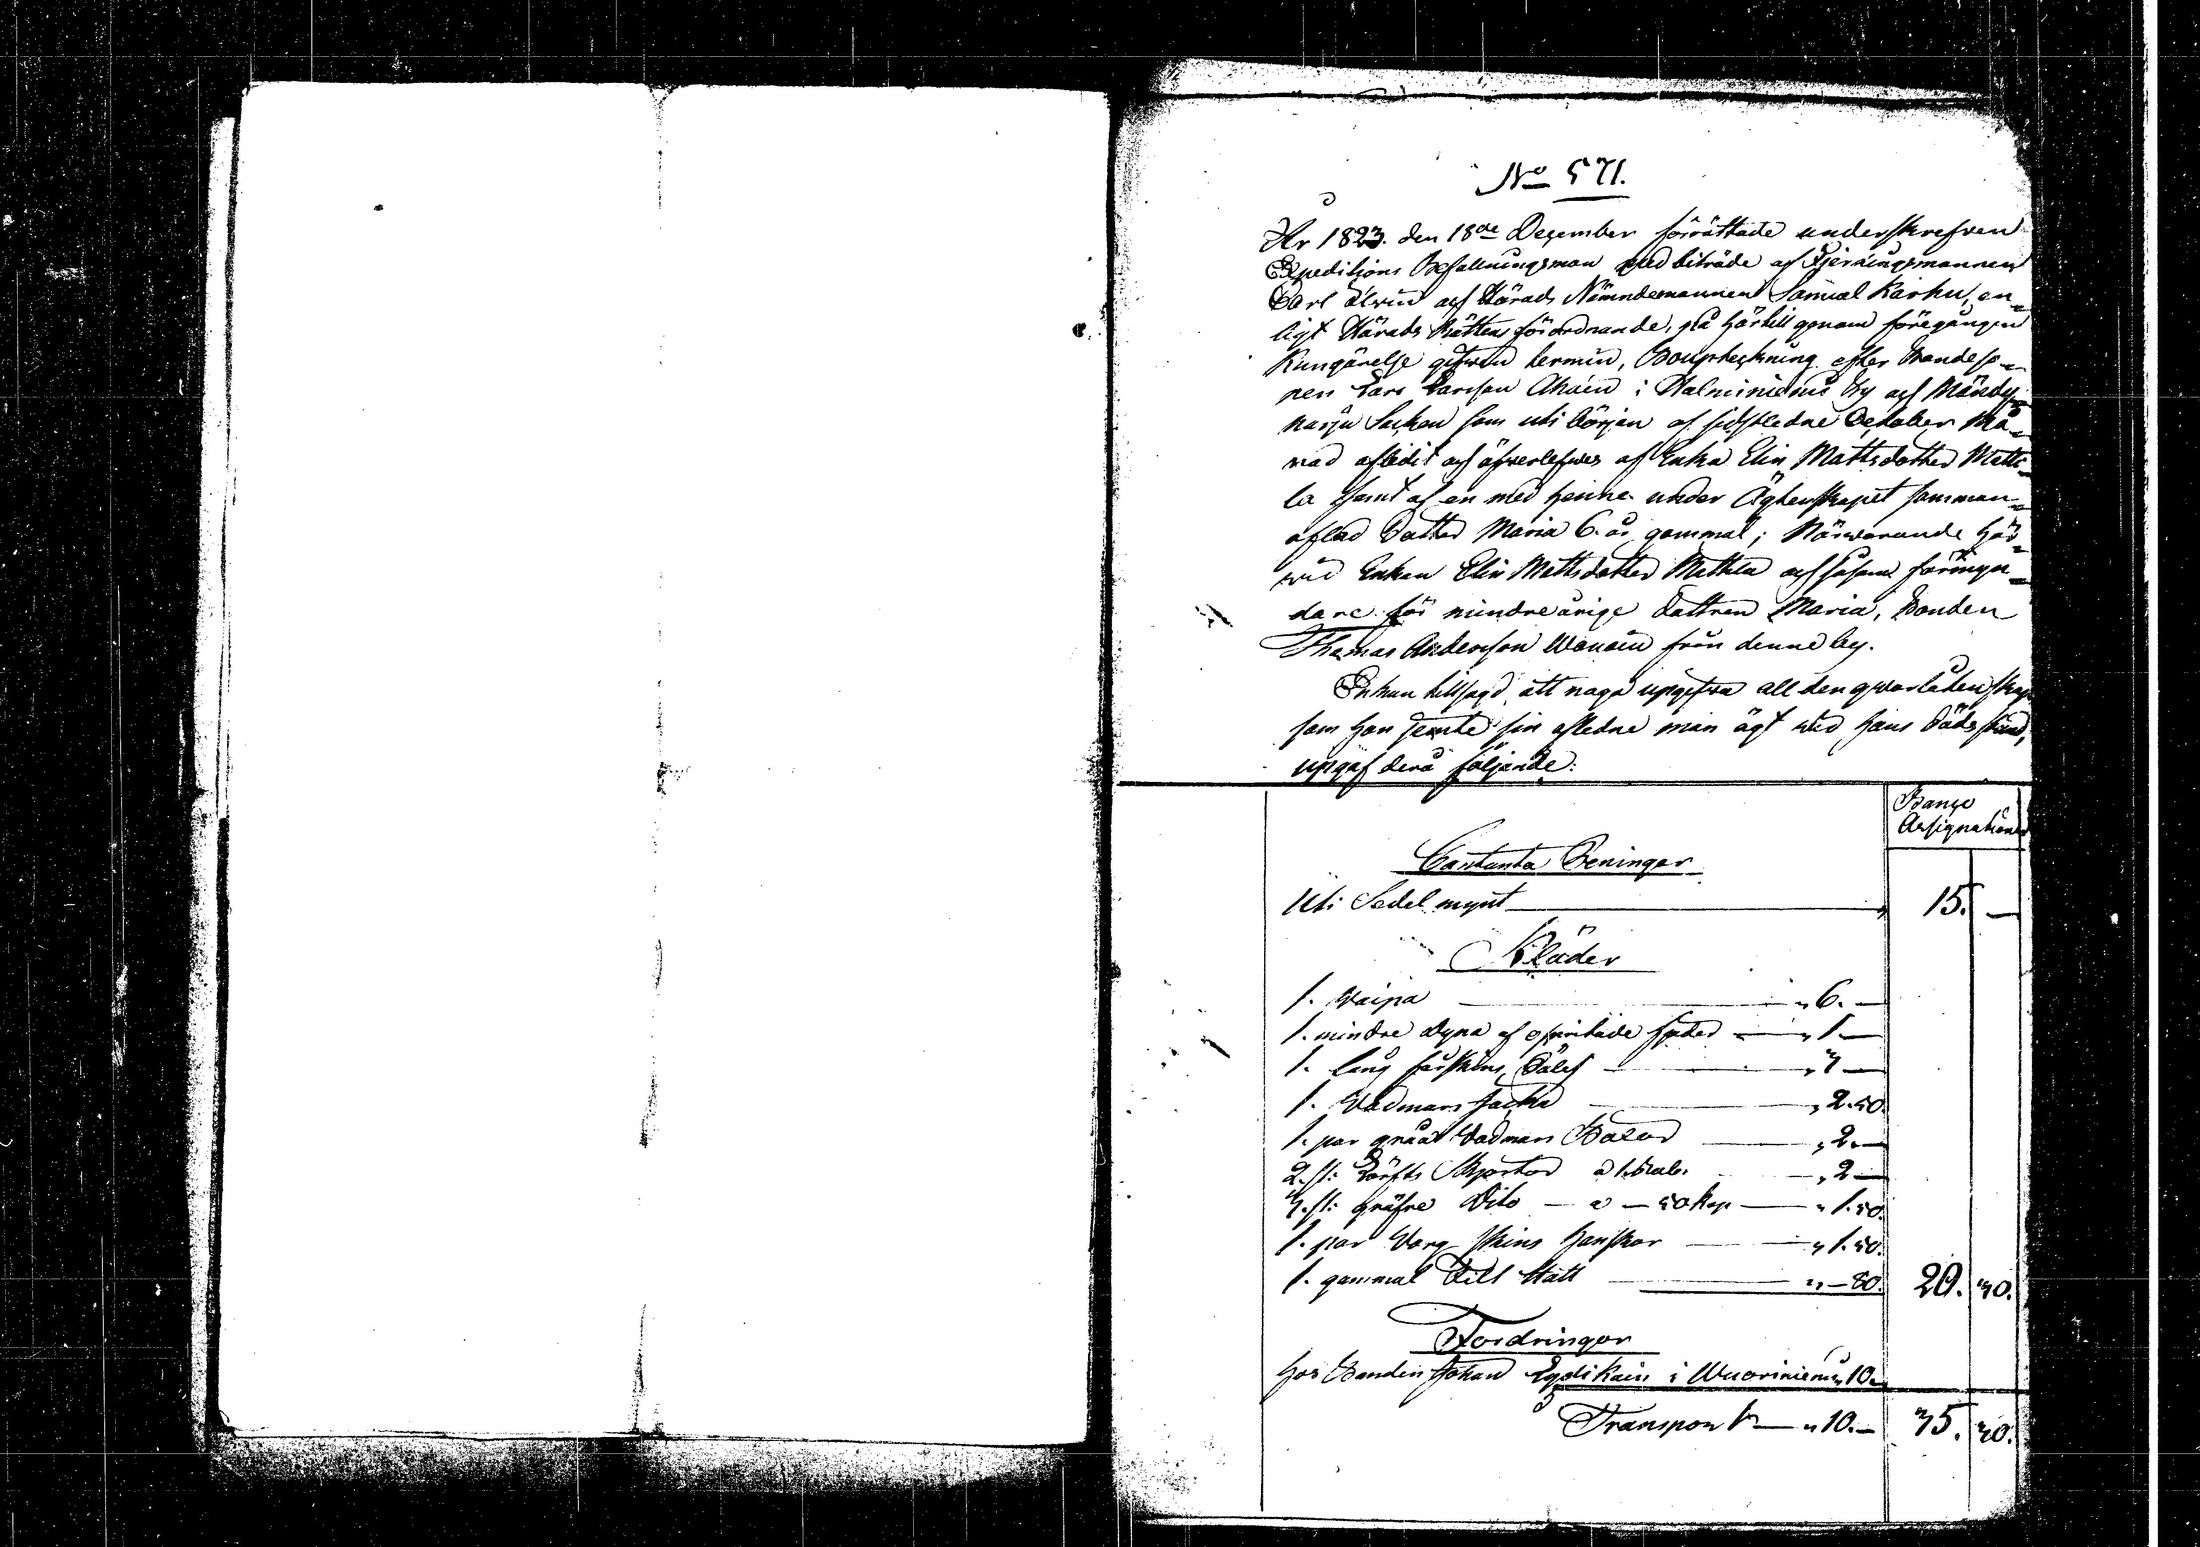 No 571.
År 1823. den 18de December förrättade underskrefven
Expeditions Befallningsman med biträde af Fjerdingsmannen
Carl och Härads Nämndemannen Samuel Karhu, en-
ligt Härads Rättens förordnande, på härtill genom föregången
Kungörelse gifwen termin, Bouptekning efter Bondeso-
nen Lars Larsson i by och Mändy-
harju Socken som uti början af sidstledne October Må-
nad aflidit och öfwerlefwes af Enka Elin Mattsdotter Matti-
la samt af en med henne under Ägtenskapet samman-
aflad Dotter Maria 6. år gammal; Närwarande här
wid Enkan Elin Mattsdotter Mattila och såsom förmyn-
dare för mindreårige Dottren Maria, Bonden
Thomas Andersson från denne by.
Enkan tillsagd, att noga upgifwa all den qwarlåtenskap
som hon jemte sin afledne man ägt wid hans dödsstund,
upgaf derå följande:
Banco
Assignationer
Contanta Peningar
Uti Sedel mynt 15. —
Kläder
1. Waipa " 6. —
1. mindre dyna af fjeder " 1 —
1. lång fårskins Päls " 3 —
1. Wadmars Jacka " 2.50.
1. par gråa Wadmars Byxor " 2. —
2. st: Lärfts Skjortor a 1. Rub. " 2 —
3. st: gräfre Dito — a — 50 kop — " 1.50.
1. par Warg skins Handskar " 1.50.
1. gammal Filt Hatt " — 80. 20. 30.
Fordringar
Hos Bonden Johan i Wuoriniemi " 10 —
Transport — " 10. — 35. 30.